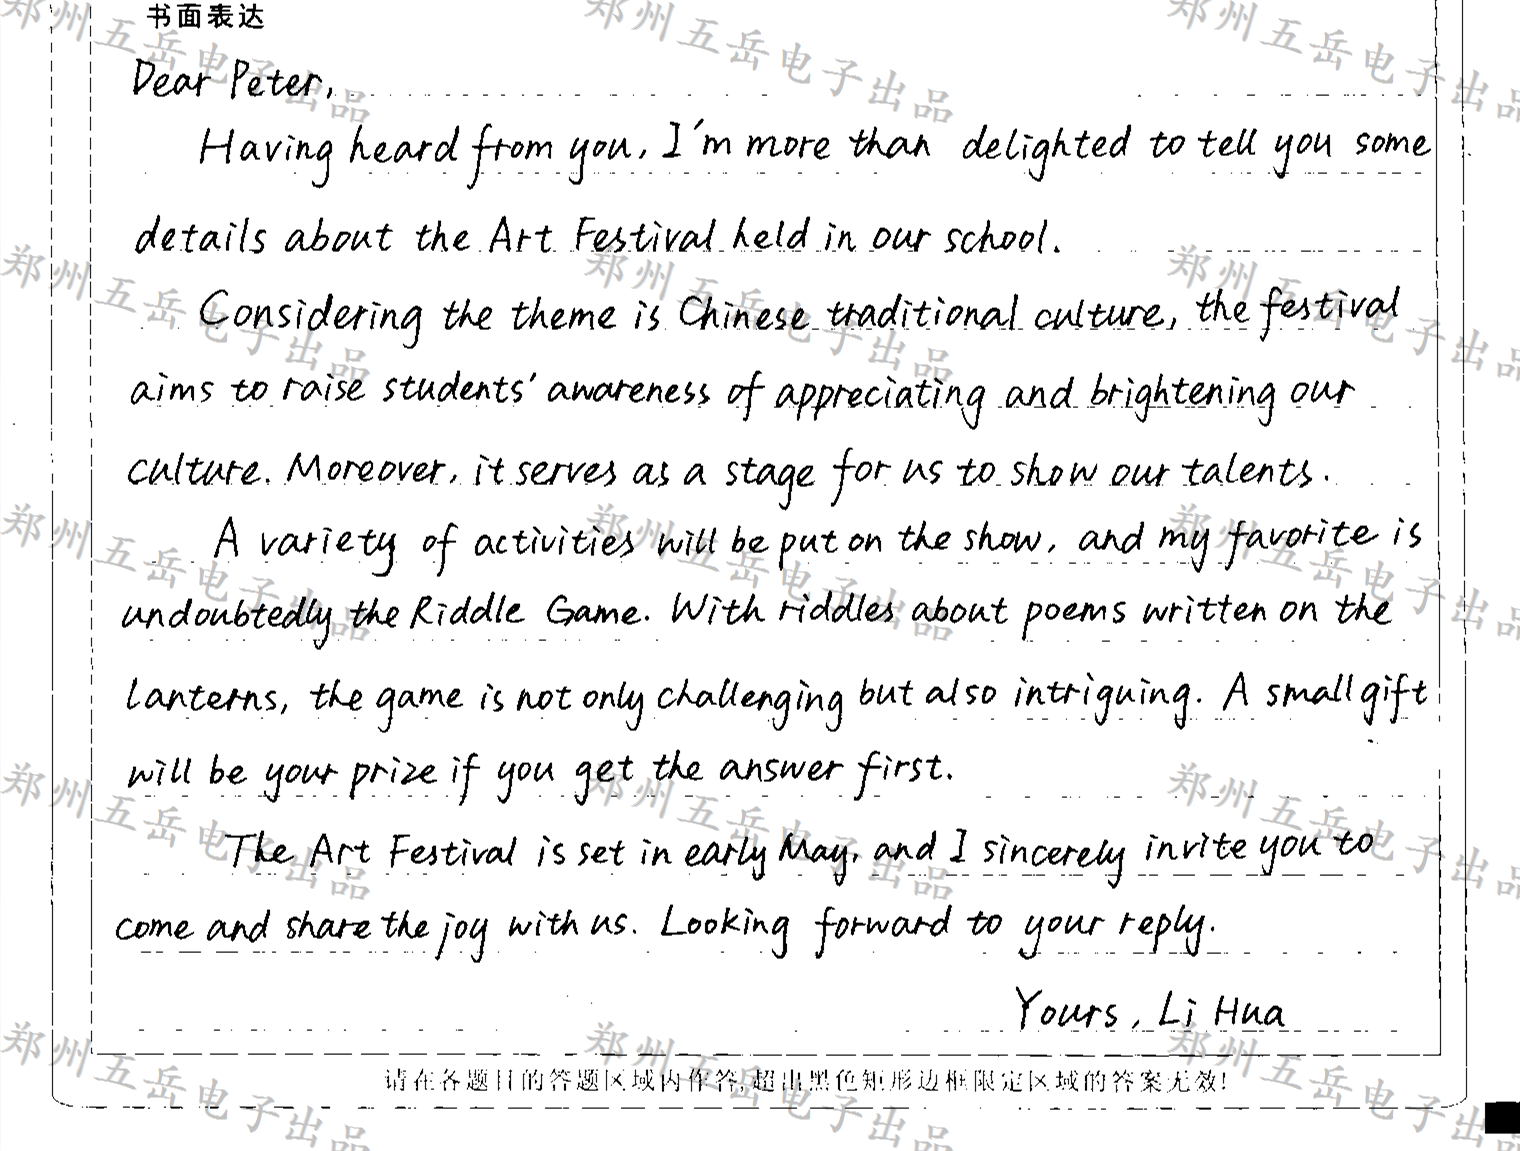 书面表达
Dear Peter,
Having heard from you, I'm more than delighted to tell you some
details about the Art Festival held in our school.
Considering the theme is Chinese traditional culture, the festival
aims to raise students' awareness of appreciating and brightening our
culture. Moreover, it serves as a stage for us to show our talents.
A variety of activities will be put on the show, and my favorite is
undoubtedly the Riddle Game. With riddles about poems written on the
lanterns, the game is not only challenging but also intriguing. A small gift
will be your prize if you get the answer first.
The Art Festival is set in early May, and I sincerely invite you to
come and share the joy with us. Looking forward to your reply.
Yours, Li Hua
请在各题目的答题区域内作答,超出黑色矩形边框限定区域的答案无效!
郑州五岳电子出品